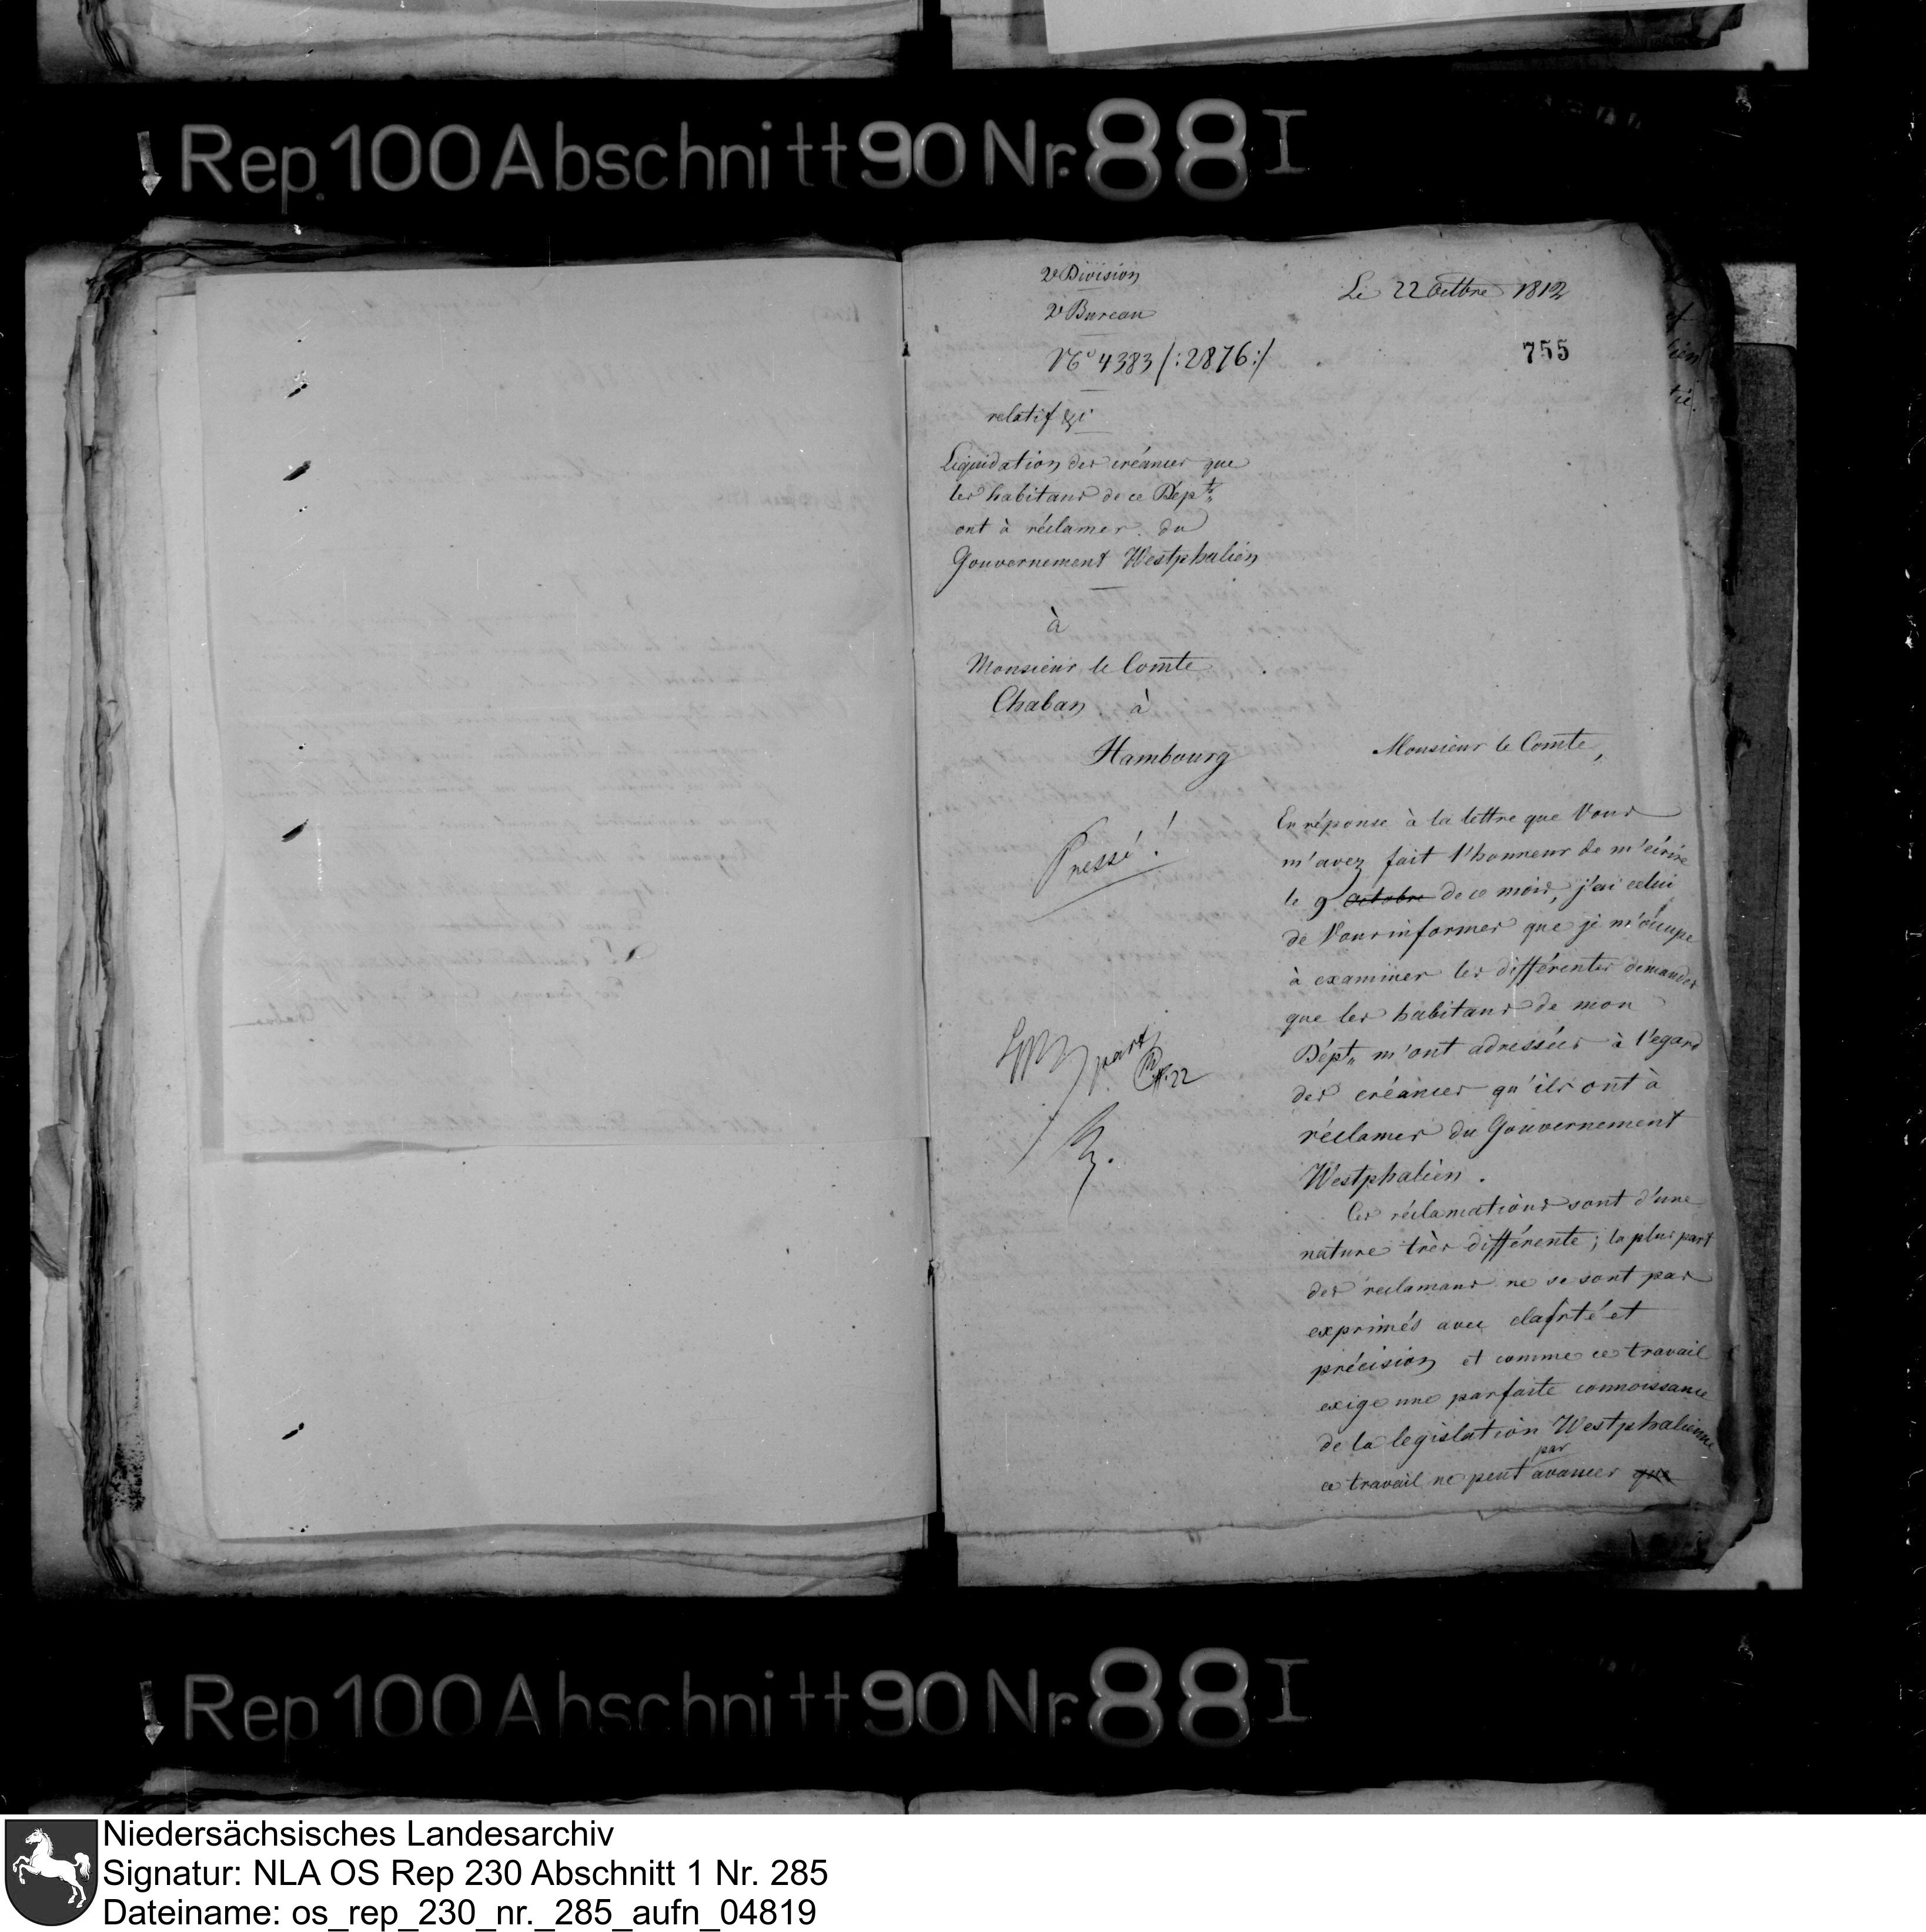 Rep. 100 Abschnitt 90 Nr. 88 I
2e Division
2e Bureau
Le 22 Octbre 1812
No 4383 /:2876:/
755
relatif &c.
Liquidation des créances que
les habitans de ce Dépt.
ont à réclamer du
Gouvernement Westphalien
à
Monsieur le Comte
Chaban à
Hambourg
Pressé!
part
22
Monsieur le Comte,
En réponse à la lettre que Vous
m'avez fait l'honneur de m'écrire
le 9 Octobre de ce mois, j'ai celui
de Vous informer que je m'occupe
à examiner les différentes demandes
que les habitans de mon
Dépt. m'ont adressées à l'egard
des créances qu'ils ont à
réclamer du Gouvernement
Westphalien.
Ces réclamations sont d'une
nature très différente; la plus part
des reclamans ne se sont pas
exprimés avec clarté et
précision et comme ce travail
exige une parfaite connoissance
de la législation Westphalienne
ce travail ne peut pas avancer que
Rep 100 Abschnitt 90 Nr. 88 I
Niedersächsisches Landesarchiv
Signatur: NLA OS Rep 230 Abschnitt 1 Nr. 285
Dateiname: os_rep_230_nr._285_aufn_04819